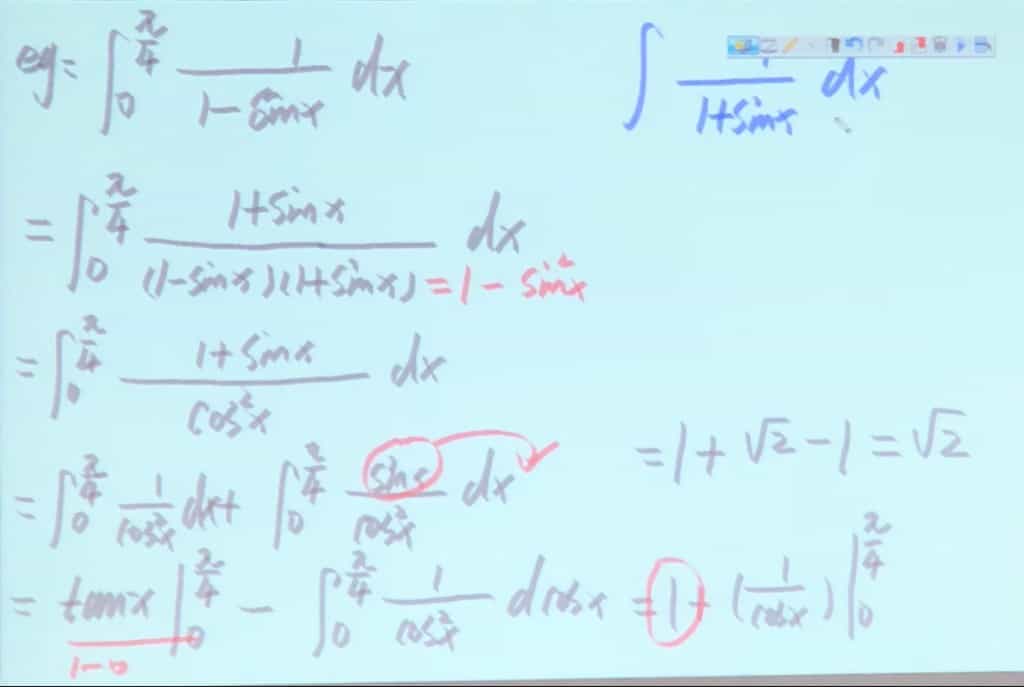 eg: ∫₀^{π/4} 1/(1-sinx) dx
∫ 1/(1+sinx) dx
= ∫₀^{π/4} (1+sinx)/((1-sinx)(1+sinx)) dx
= 1 - sin²x
= ∫₀^{π/4} (1+sinx)/(cos²x) dx
= ∫₀^{π/4} 1/(cos²x) dx + ∫₀^{π/4} sinx/(cos²x) dx
= 1 + √2 - 1 = √2
= tanx |₀^{π/4} - ∫₀^{π/4} 1/(cos²x) dcosx = 1 + (1/cosx) |₀^{π/4}
1-0